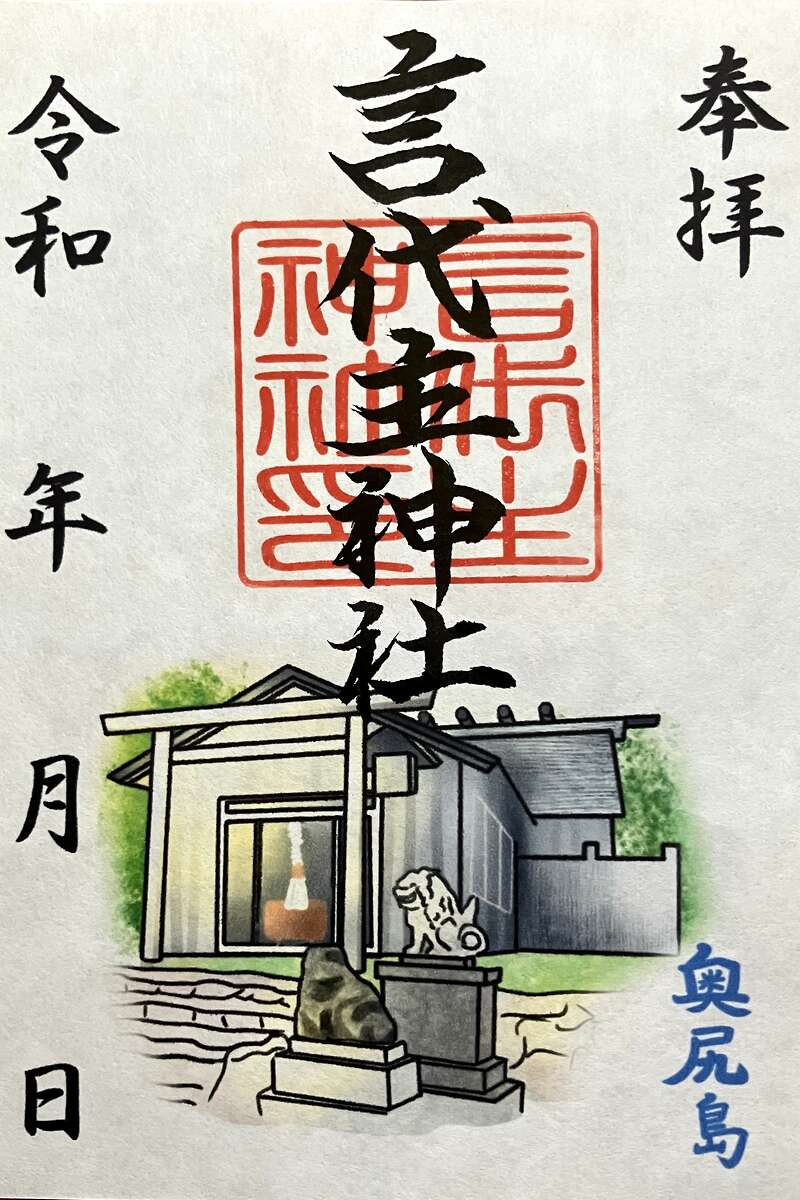 奉拝
言代主神社
言代主
神社印
令和 年 月 日
奥尻島